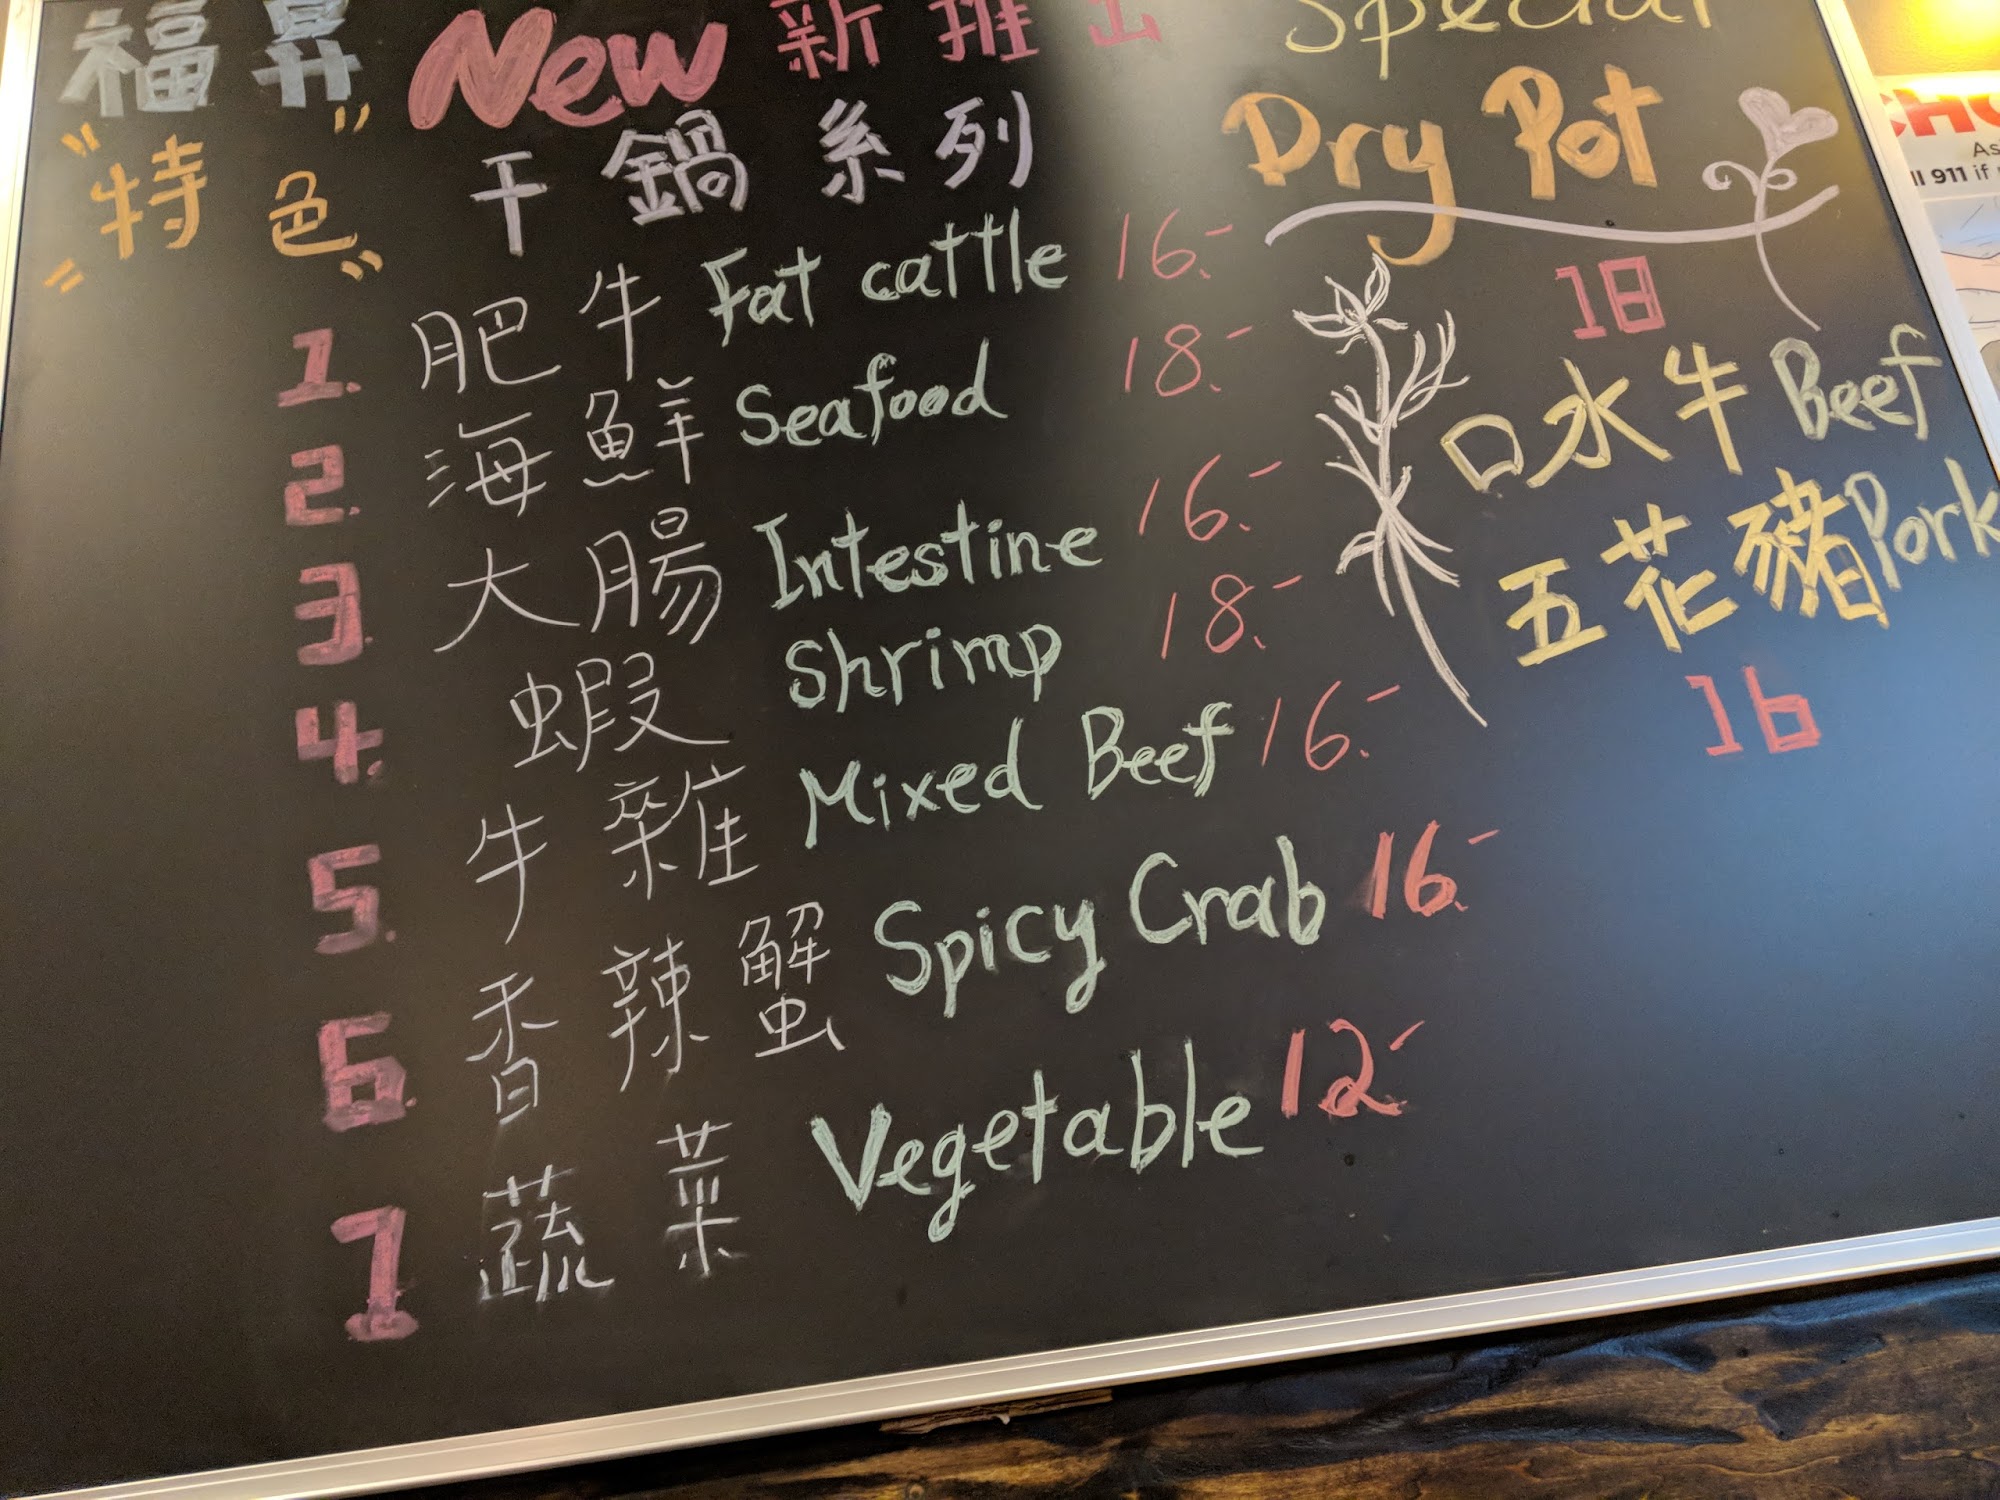 福昇 New 新推出 Special
"特色" 干鍋系列 Dry Pot
1. 肥牛 Fat cattle 16.-
2. 海鮮 Seafood 18.-
3. 大腸 Intestine 16.-
4. 蝦 Shrimp 18.-
5. 牛雜 Mixed Beef 16.-
6. 香辣蟹 Spicy Crab 16.-
7 蔬菜 Vegetable 12-
18
口水牛 Beef
五花豬 Pork
16
CHO
As
ll 911 if